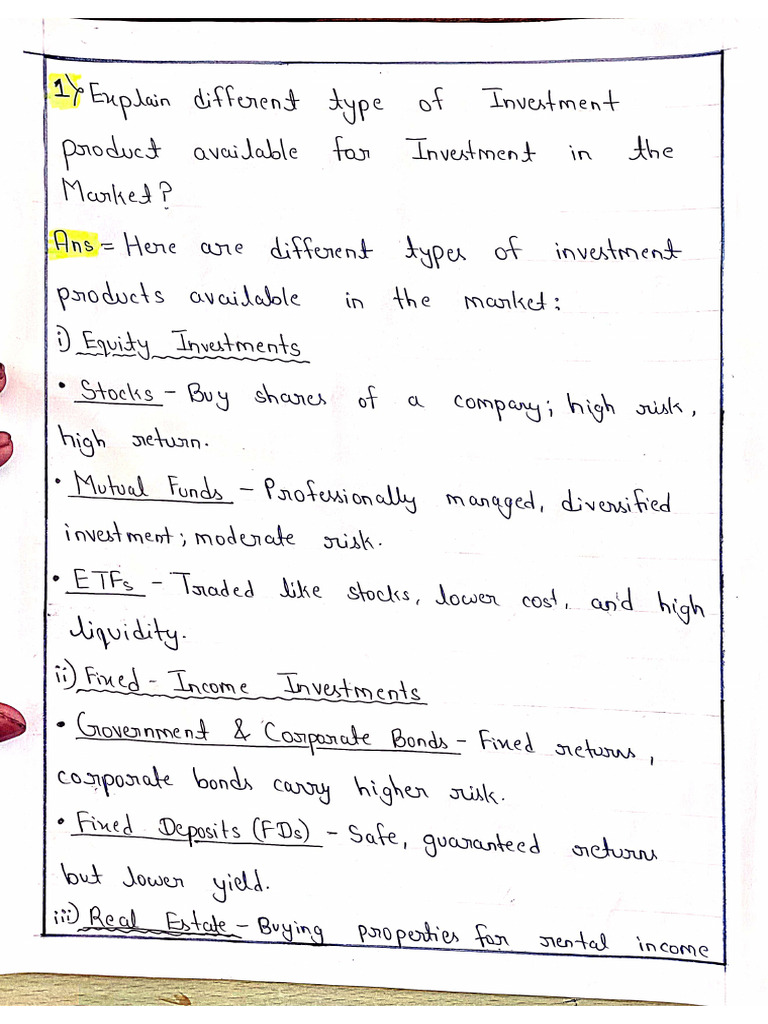 1) Explain different type of Investment
product available for Investment in the
Market?
Ans = Here are different types of investment
products available in the market:
i) Equity Investments
• Stocks - Buy shares of a company; high risk,
high return.
• Mutual Funds - Professionally managed, diversified
investment; moderate risk.
• ETFs - Traded like stocks, lower cost, and high
liquidity.
ii) Fixed - Income Investments
• Government & Corporate Bonds - Fixed returns,
corporate bonds carry higher risk.
• Fixed Deposits (FDs) - Safe, guaranteed returns
but lower yield.
iii) Real Estate - Buying properties for rental income